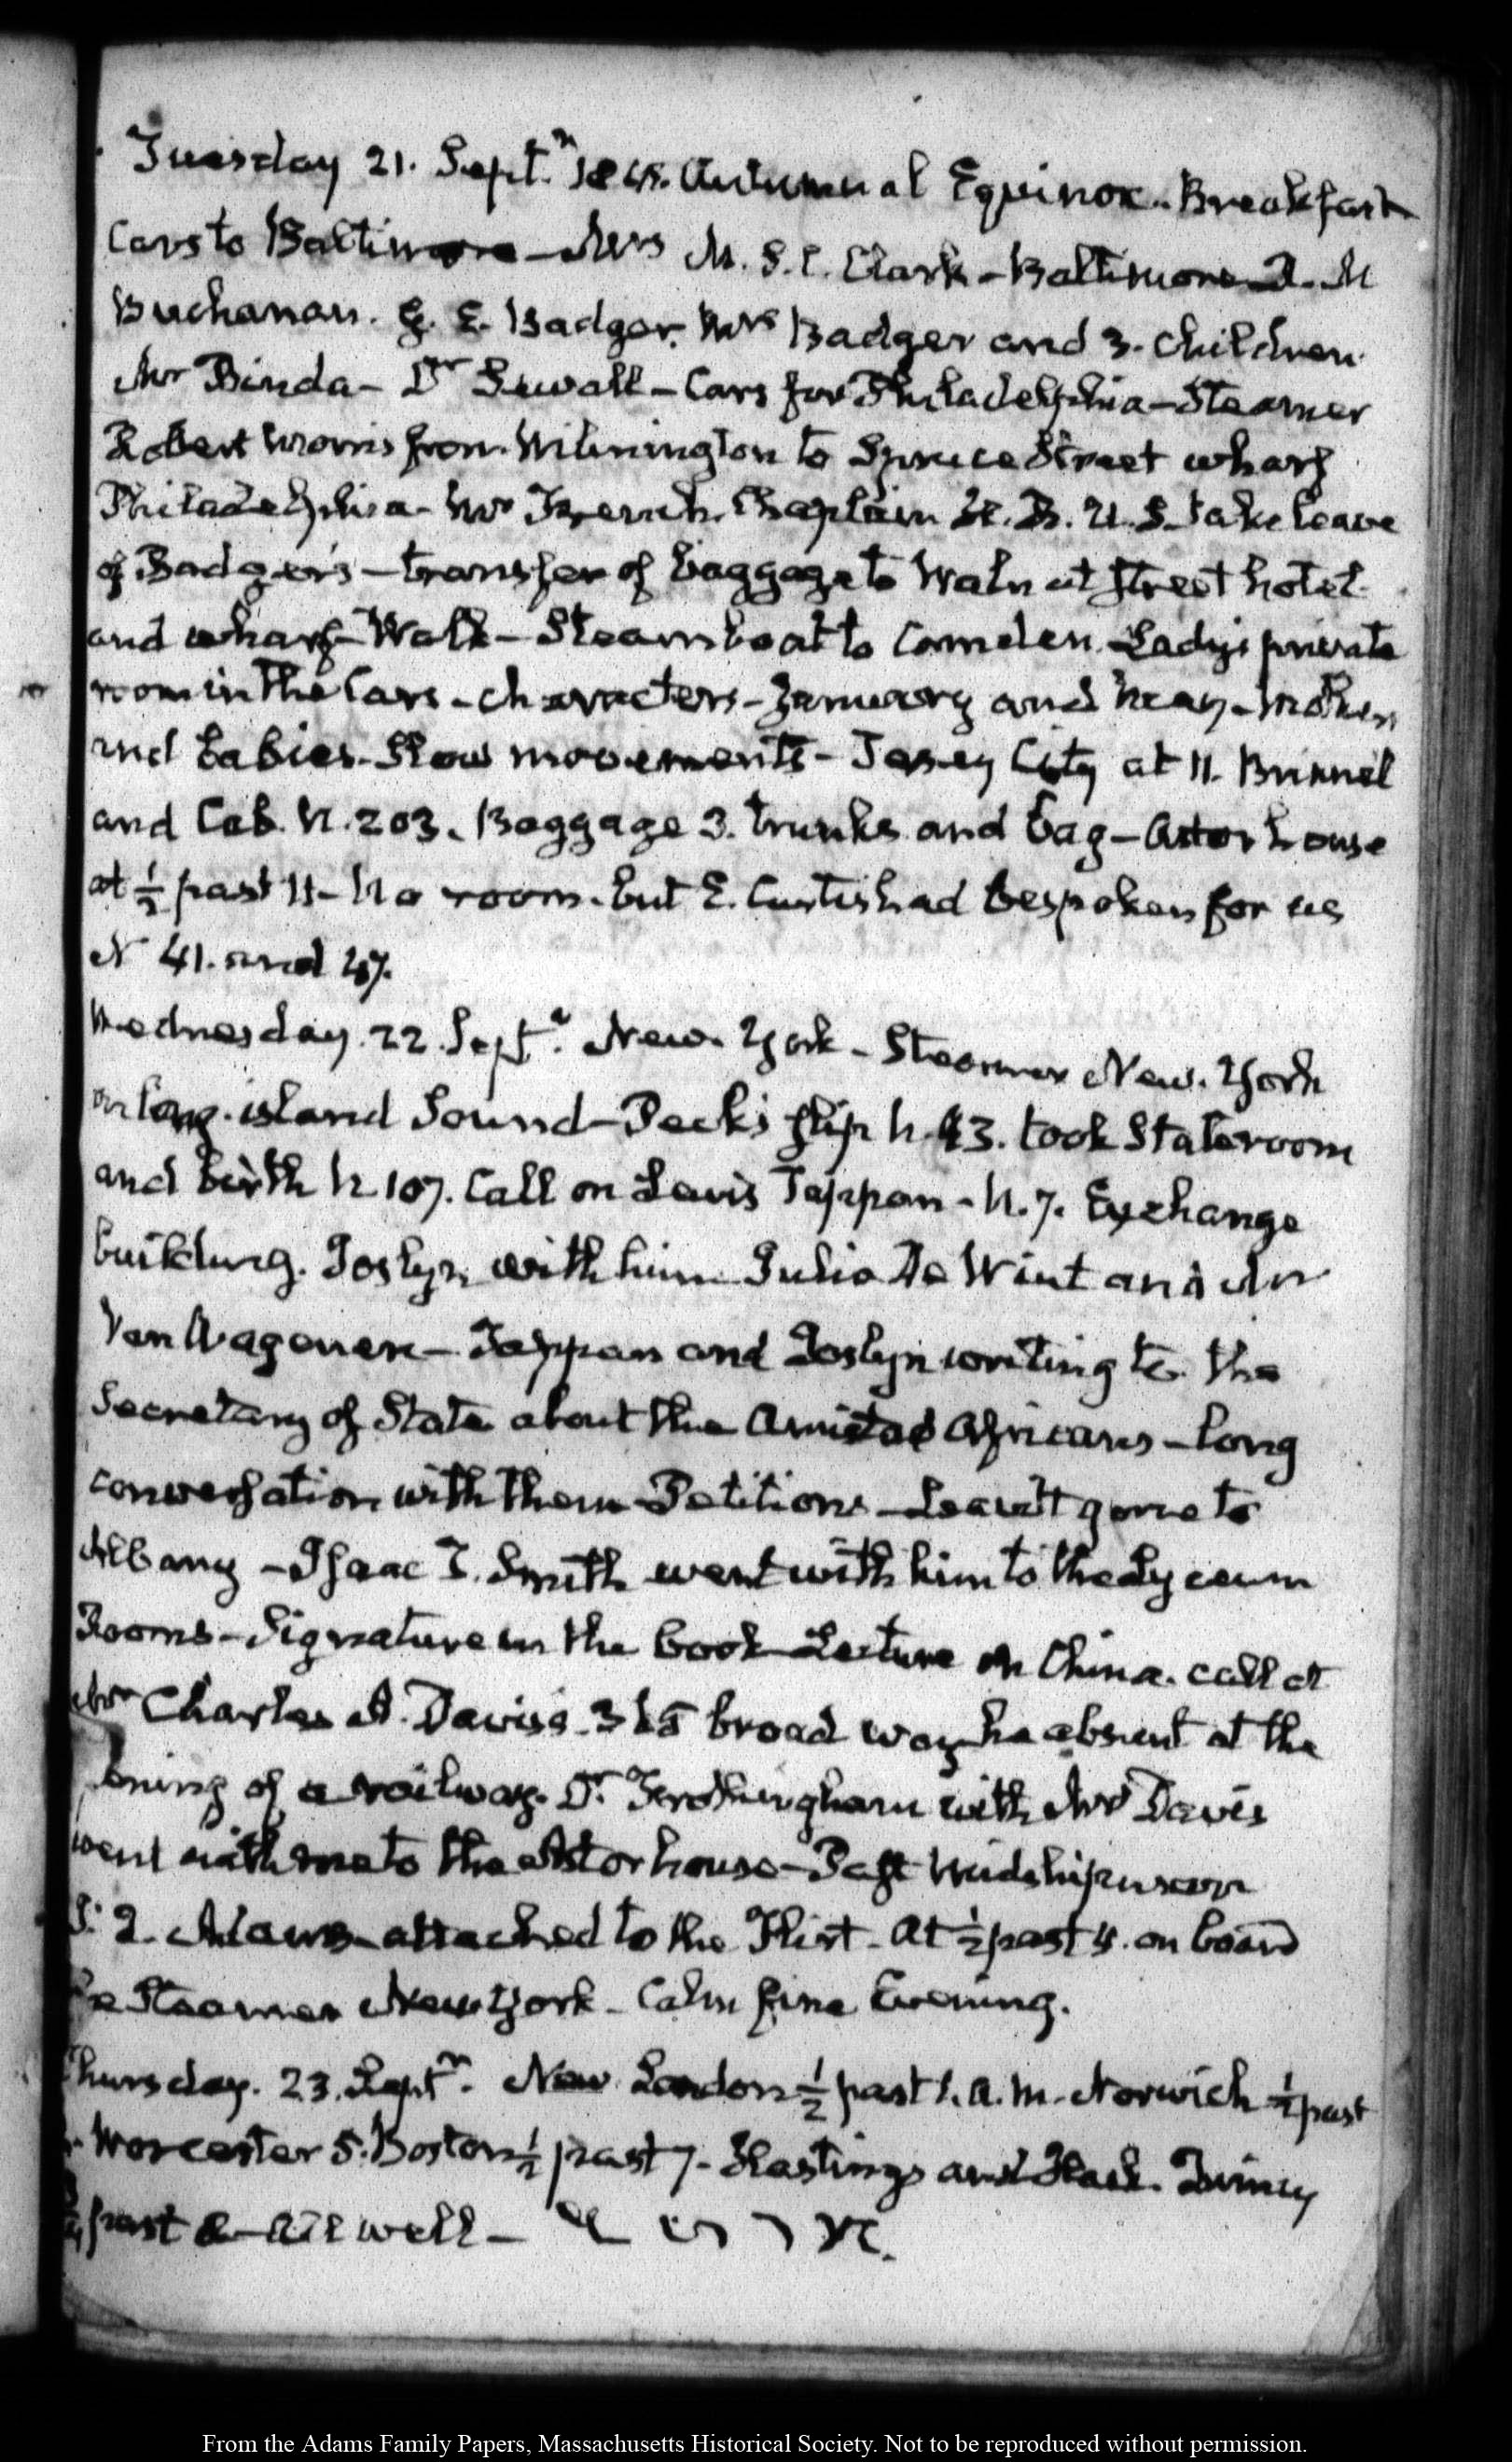 Tuesday 21. Septr. 1841. Autumnal Equinox. Breakfast
Cars to Baltimore – Mrs M. S. C. Clark – Baltimore M
Buchanan. G. E. Badger. Mrs Badger and 3. children
Mr Binda – Dr Sewall – Cars for Philadelphia – Steamer
Robert Morris from Wilmington to Spruce Street wharf
Philadelphia – Mr French Chaplain U. S. take leave
of Badger's – transfer of baggage to Walnut Street hotel
and wharf – Walk – Steamboat to Camden. Lady's private
room in the Cars – characters – January and May – Mothers
and babies. Slow movements – Jersey City at 11.
and Cab. N. 203. Baggage 3. trunks and bag – Astor house
at ½ past 11 – No room. but E. Curtis had bespoken for us
N 41. and 47.
Wednesday. 22. Septr. New. York – Steamer New. York
on long. island Sound – Peck's slip N. 43. took Stateroom
and birth N 107. Call on Lewis Tappan – N. 7. Exchange
building. Joslyn with him Julia De Wint and Mr
Van Wagenen – Tappan and Joslyn writing to the
Secretary of State about the Amistad Africans – long
conversation with them Petitions – Leavitt gone to
Albany – Isaac T. Smith went with him to the Lyceum
Rooms – Signature in the book Lecture on China. call at
Mr Charles A. Davis's 365 broad way he absent at the
opening of a railway. Dr. Frothingham with Mrs Davis
went with me to the Astor house – Past Midshipman
J. Q. Adams – attached to the Flirt – At ½ past 4. on board
the Steamer New York – Calm fine Evening.
Thursday. 23. Septr. New London ½ past 1. A.M. Norwich ½ past
Worcester 5. Boston ½ past 7. Hastings and Hack. Quincy
past 8 – All well –
From the Adams Family Papers, Massachusetts Historical Society. Not to be reproduced without permission.